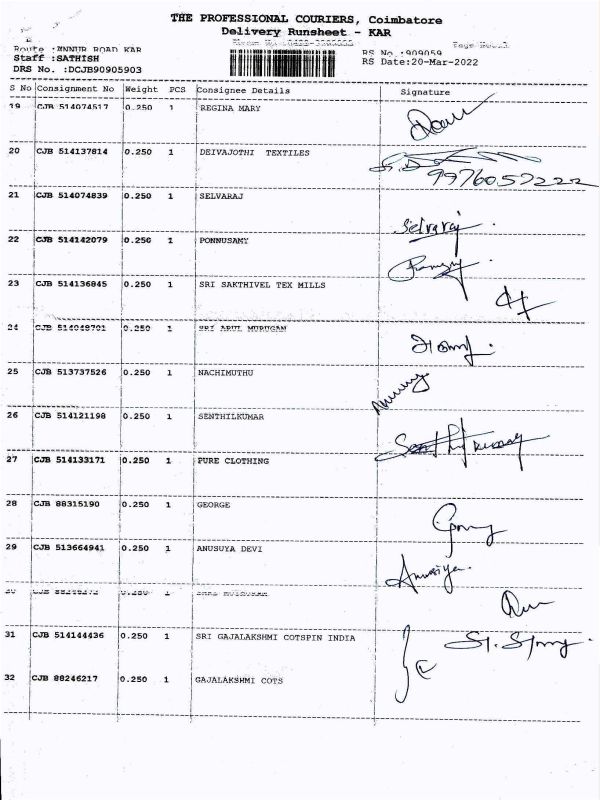 THE PROFESSIONAL COURIERS, Coimbatore
Delivery Runsheet - KAR
Route :ANNUR ROAD KAR
Staff :SATHISH
DRS No. :DCJB90905903
RS No :909059
RS Date:20-Mar-2022
S No Consignment No Weight PCS Consignee Details Signature
19 CJB 514074517 0.250 1 REGINA MARY
20 CJB 514137814 0.250 1 DEIVAJOTHI TEXTILES
9976057222
21 CJB 514074839 0.250 1 SELVARAJ Selvaraj
22 CJB 514142079 0.250 1 PONNUSAMY
23 CJB 514136845 0.250 1 SRI SAKTHIVEL TEX MILLS
24 CJB 0.250 1 SRI ARUL MURUGAN
25 CJB 513737526 0.250 1 NACHIMUTHU
26 CJB 514121198 0.250 1 SENTHILKUMAR Senthilkumar
27 CJB 514133171 0.250 1 PURE CLOTHING
28 CJB 88315190 0.250 1 GEORGE
29 CJB 513664941 0.250 1 ANUSUYA DEVI Anusiya.
31 CJB 514144436 0.250 1 SRI GAJALAKSHMI COTSPIN INDIA
32 CJB 88246217 0.250 1 GAJALAKSHMI COTS